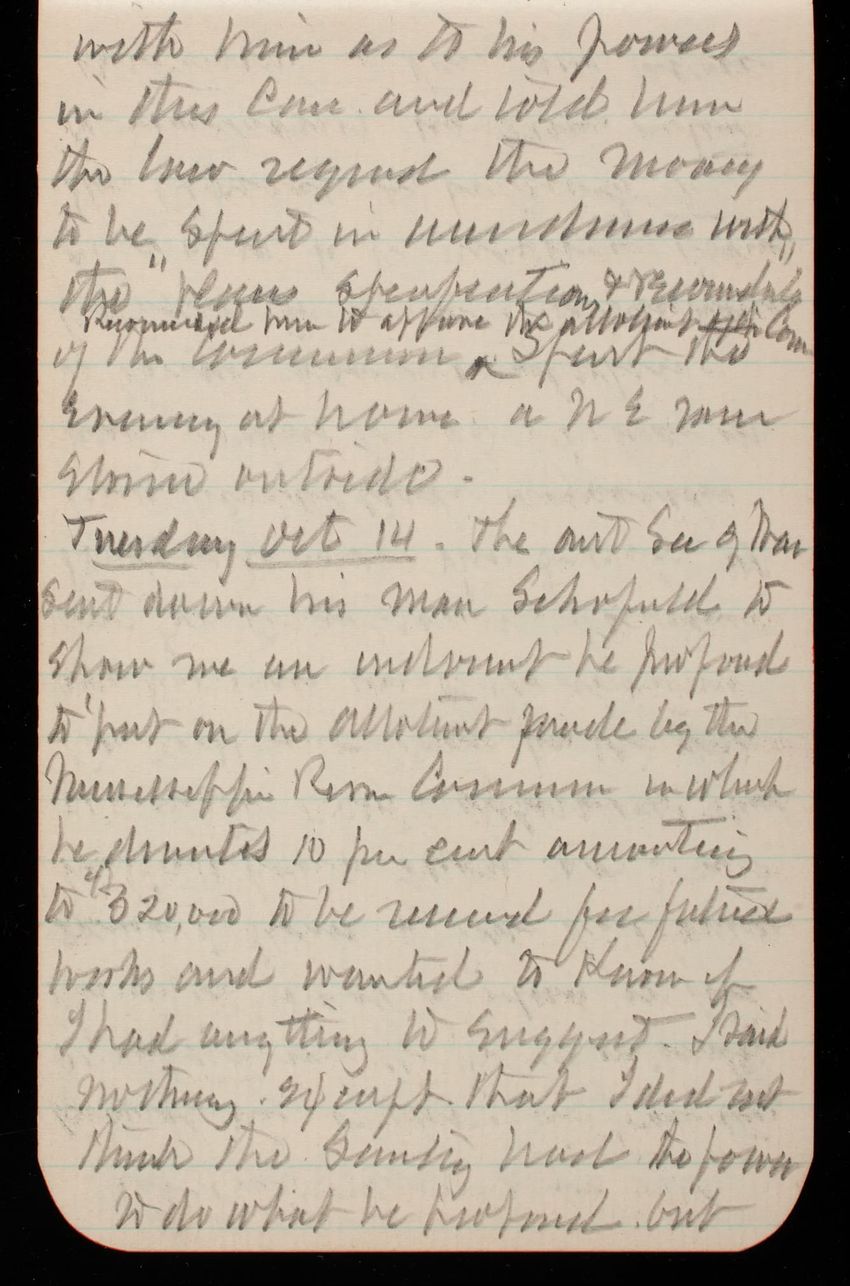 with him as to his powers
in this Case and told him
the law required the money
to be spent in accordance with
the "plans specification & recommendations"
Recommended him to approve the allotment of the Com
of the Commission. Spent the
Evening at home a N E rain
Storm outside.
Tuesday Oct 14. The act Sec of War
sent down his man Schofield to
show me an indorsement he proposed
to put on the allotment made by the
Mississippi River Commission in which
he 10 per cent amounting
to $320,000 to be reserved for future
works and wanted to know if
I had anything to suggest. I said
nothing except that I did not
think the Secretary had the power
to do what he proposed but